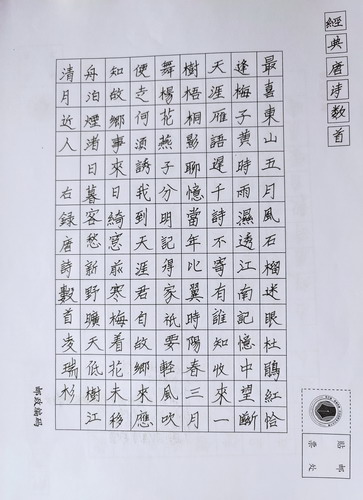 經典唐诗數首
最喜東山五月風石榴迷眼杜鵑紅恰
逢梅子黄時雨濕透江南記憶中望斷
天涯雁語遲千詩不寄有誰知收來一
樹梧桐影聊憶當年比翼時陽春三月
舞楊花燕子分明記得家祇要輕風吹
便走何須誘我到天涯君自故鄉來應
知故鄉事來日綺窓前寒梅着花未移
舟泊煙渚日暮客愁新野曠天低樹江
清月近人 右録唐詩數首凌瑞杉
貼郵票处
邮政编码